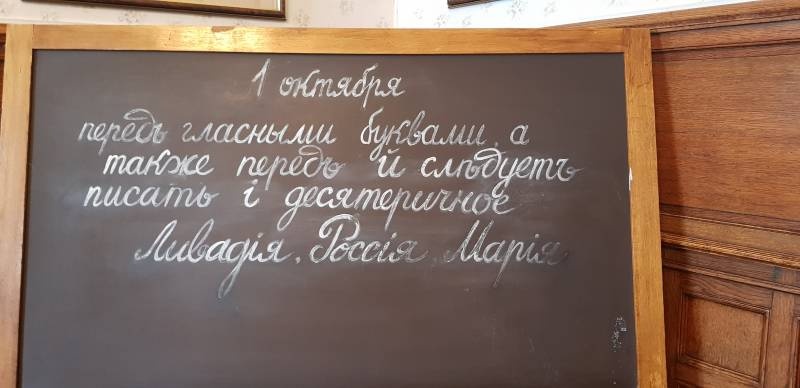 1 октября
передъ гласными буквами, а
также передъ й слѣдуетъ
писать і десятеричное
Ливадія, Россія, Марія